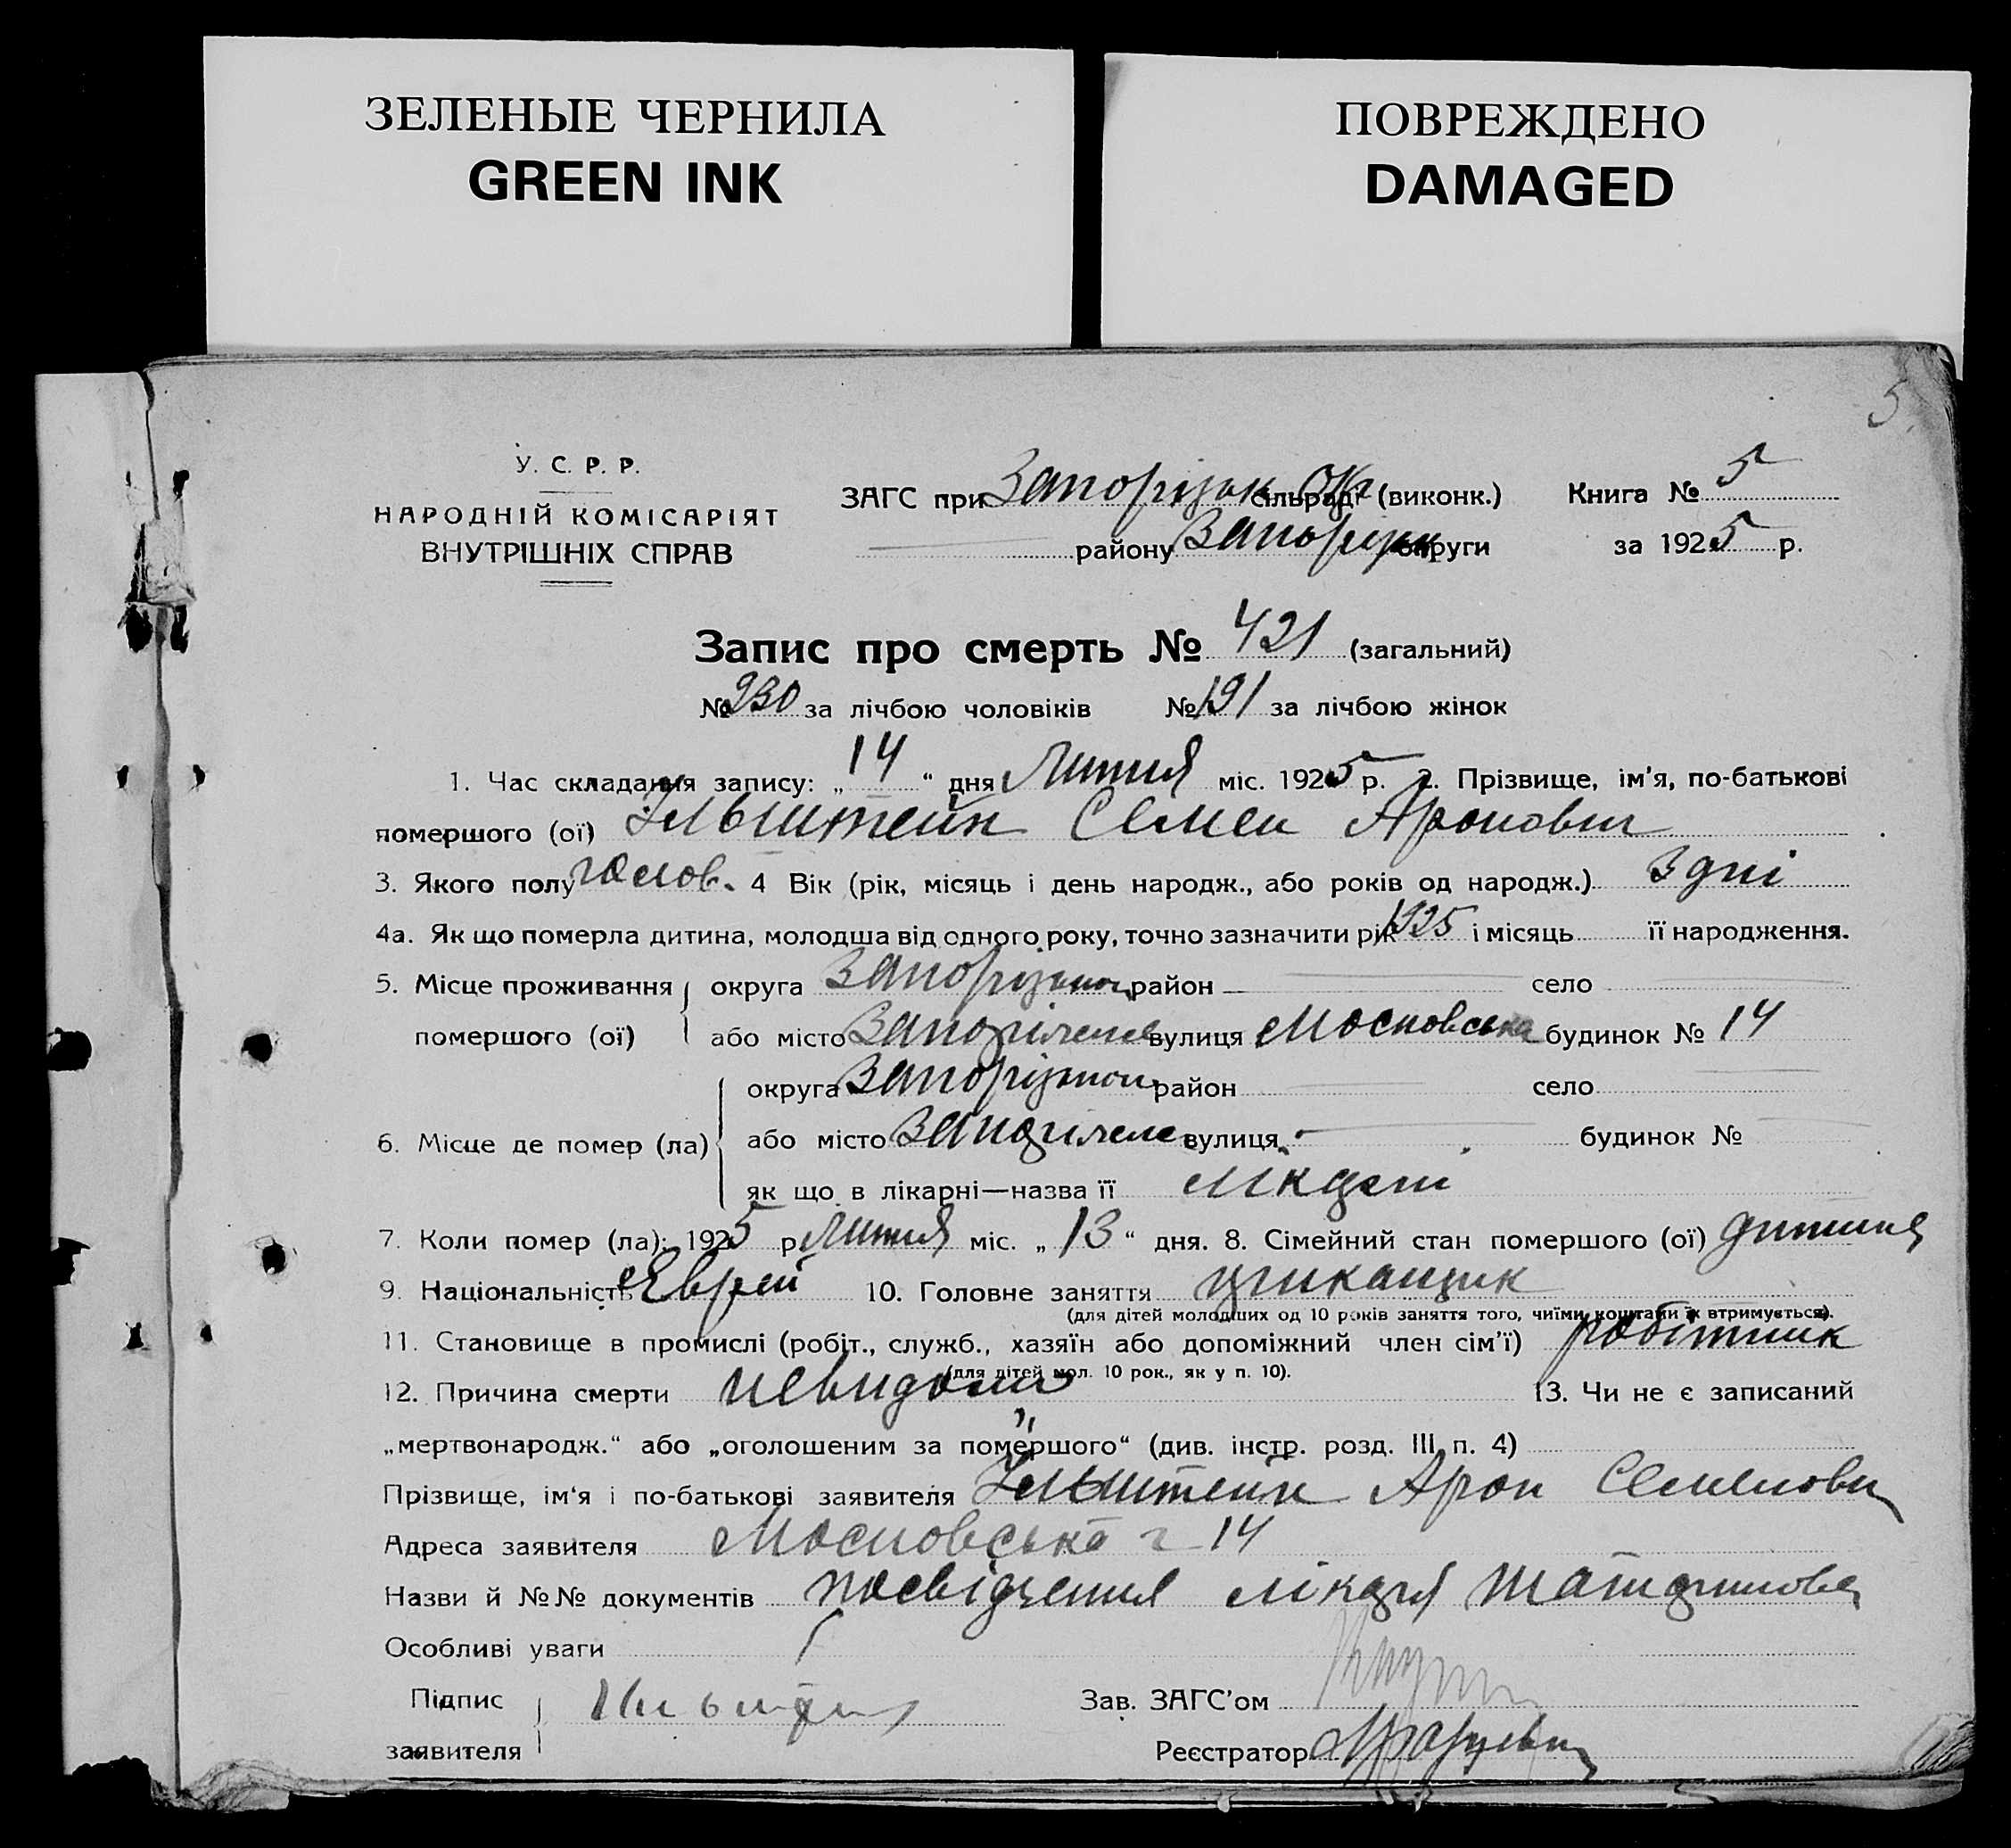 ЗЕЛЕНЫЕ ЧЕРНИЛА
GREEN INK
ПОВРЕЖДЕНО
DAMAGED
5
У. С. Р. Р.
НАРОДНІЙ КОМІСАРІЯТ
ВНУТРІШНІХ СПРАВ
ЗАГС при Запорізьк Ок сільраді (виконк.)
району Запорізьк округи
Книга № 5
за 1925 р.
Запис про смерть № 421 (загальний)
№ 230 за лічбою чоловіків № 191 за лічбою жінок
1. Час складання запису: „14“ дня Липня міс. 1925 р. 2. Прізвище, ім’я, по-батькові
помершого (ої) Ільштейн Семен Аронович
3. Якого полу чолов. 4 Вік (рік, місяць і день народж., або років од народж.) 3 дні
4а. Як що померла дитина, молодша від одного року, точно зазначити рік 1925 і місяць її народження.
5. Місце проживання округа Запорізької район село
помершого (ої) або місто Запоріжжя вулиця Московська будинок № 14
округа Запорізької район село
6. Місце де помер (ла) або місто Запоріжжя вулиця будинок №
як що в лікарні—назва її
7. Коли помер (ла): 1925 р Липня міс. „13“ дня. 8. Сімейний стан помершого (ої) дитина
9. Національність Еврей 10. Головне заняття
(для дітей молодших од 10 років заняття того, чиїми коштами їх втримується).
11. Становище в промислі (робіт., служб., хазяїн або допоміжний член сім’ї) робітник
(для дітей мол. 10 рок., як у п. 10).
12. Причина смерти невидома 13. Чи не є записаний
„мертвонародж.“ або „оголошеним за помершого“ (див. інстр. розд. III п. 4)
Прізвище, ім‘я і по-батькові заявителя Ільштейн Арон Семенович
Адреса заявителя Московська 14
Назви й №№ документів посвідчення лікаря
Особливі уваги
Підпис
заявителя
Зав. ЗАГС’ом
Реєстратор